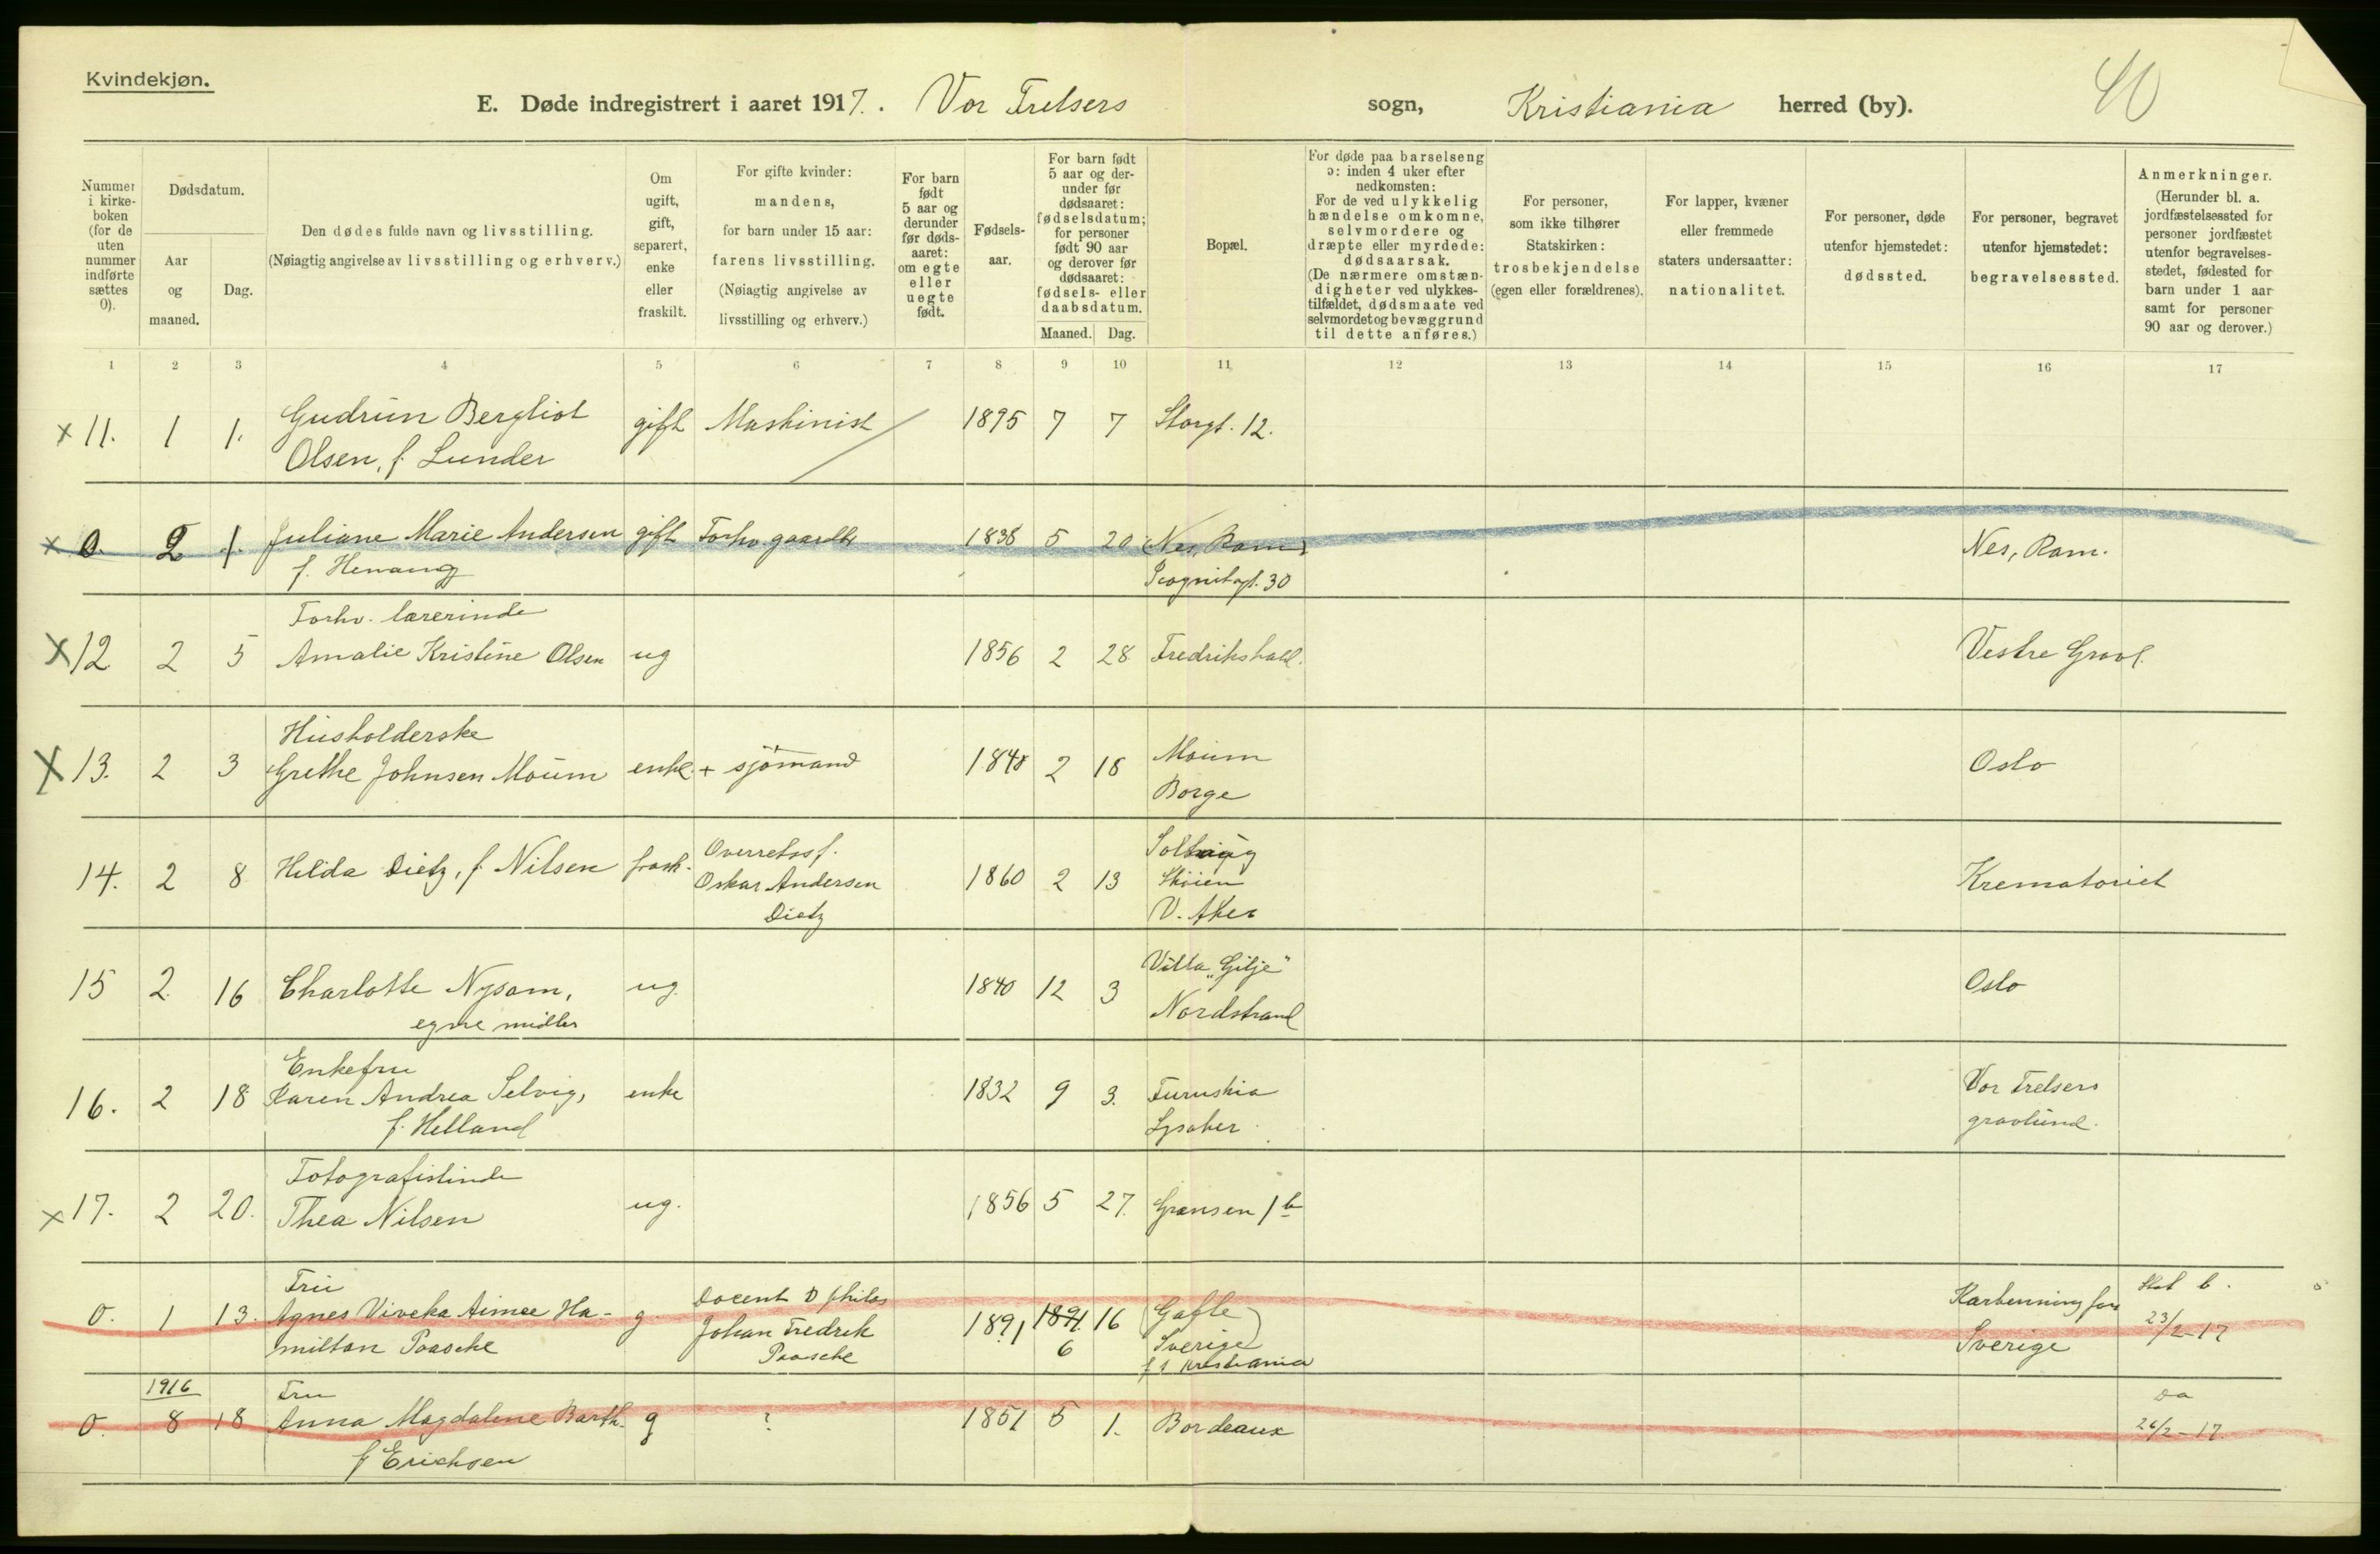 Kvindekjøn.
E. Døde indregistrert i aaret 1917. Vor Frelsers sogn, Kristiania herred (by).
40
Nummer i kirkeboken (for de uten nummer indførte sættes 0).
Dødsdatum.
Aar og maaned.
Dag.
Den dødes fulde navn og livsstilling.
(Nøiagtig angivelse av livsstilling og erhverv.)
Om ugift, gift, separert, enke eller fraskilt.
For gifte kvinder: mandens, for barn under 15 aar: farens livsstilling.
(Nøiagtig angivelse av livsstilling og erhverv.)
For barn født 5 aar og derunder før dødsaaret: om egte eller uegte født.
Fødselsaar.
For barn født 5 aar og derunder før dødsaaret: fødselsdatum; for personer født 90 aar og derover før dødsaaret: fødsels- eller daabsdatum.
Maaned. Dag.
Bopæl.
For døde paa barselseng ɔ: inden 4 uker efter nedkomsten: For de ved ulykkelig hændelse omkomne, selvmordere og dræpte eller myrdede: dødsaarsak.
(De nærmere omstændigheter ved ulykkestilfældet, dødsmaate ved selvmordet og bevæggrund til dette anføres.)
For personer, som ikke tilhører Statskirken: trosbekjendelse (egen eller forældrenes).
For lapper, kvæner eller fremmede staters undersaatter: nationalitet.
For personer, døde utenfor hjemstedet: dødssted.
For personer, begravet utenfor hjemstedet: begravelsessted.
Anmerkninger.
(Herunder bl. a. jordfæstelsessted for personer jordfæstet utenfor begravelsesstedet, fødested for barn under 1 aar samt for personer 90 aar og derover.)
1 2 3 4 5 6 7 8 9 10 11 12 13 14 15 16 17
x 11. 1 1. Gudrun Bergliot gift Maskinist 1895 7 7 Storgt. 12.
Olsen, f. Lunder
x 0. 2 1. Juliane Marie Andersen gift Forhv. gaardbr 1838 5 20 (Nes, Rom) Nes, Rom.
f. Henaug 30
Forhv. lærerinde
x 12 2 5 Amalie Kristine Olsen ug 1856 2 28 Fredrikshald. Vestre Gravl.
Husholderske
x 13. 2 3 Grethe Johnsen Moum enke. + sjømand 1848 2 18 Moum Oslo
Borge
Overretssf.
14. 2 8 Hilda Dietz, f. Nilsen frask. Oskar Andersen 1860 2 13 Skøien Krematoriet
Dietz V. Aker
Villa "Gilje"
15 2. 16 Charlotte Nysom, ug. 1840 12 3 Nordstrand Oslo
egne midler
Enkefru
16. 2 18 Karen Andrea Selvig, enke 1832 9 3. Furuskia Vor Frelsers
f. Helland Lysaker gravlund.
Fotografistinde
x 17. 2 20. Thea Nilsen ug. 1856 5 27. Grænsen 1 b
Fru Docent D philos
0. 1 13. Agnes Viveka Aimee Ha- g. Johan Fredrik 1891 1891. 16 (Gafle Karbenning fors 23/2-17
milton Paasche Paasche 6 Sverige) Sverige
f. i Kristiania
1916 Fru Da
0. 8 18 Anna Magdalene Barth. g ? 1851 5 1. Bordeaux 26/2-17.
f Erichsen